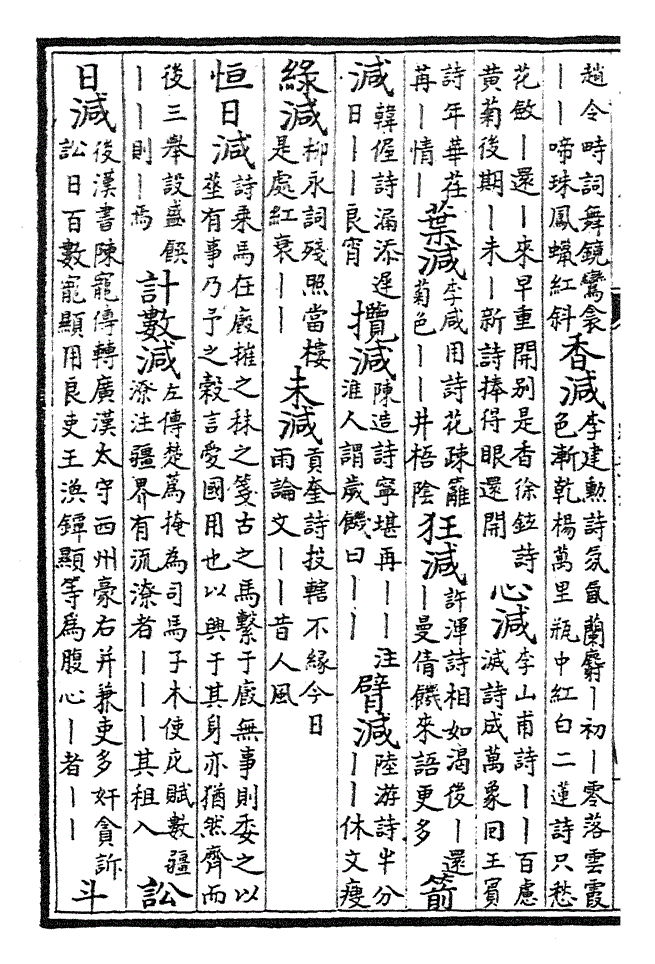 趙令畤詞舞鏡鸞衾
｜｜啼珠鳳蠟紅斜
香減
李建勲詩氛氳蘭麝｜初｜零落雲霞
色漸乾楊萬里瓶中紅白二蓮詩只愁
花斂｜還｜來早重開别是香徐鉉詩
黄菊後期｜未｜新詩捧得眼還開
心減
李山甫詩｜｜百慮
減詩成萬象回王賓
詩年華荏
苒｜情｜
葉減
李咸用詩花疎籬
菊色｜｜井梧陰
狂減
許渾詩相如渴後｜還
｜曼倩饑來語更多
箭
減
韓偓詩漏添遲
日｜｜良宵
攬減
陳造詩寧堪再｜｜｜注
淮人謂歲饑曰｜｜
臂減
陸游詩半分
｜｜休文瘦
綠減
柳永詞殘照當樓
是處紅衰｜｜
未減
貢奎詩投轄不緣今日
雨論文｜｜昔人風
恒日減
詩乗馬在廄摧之秣之箋古之馬繫于廄無事則委之以
莝有事乃予之穀言愛國用也以興于其身亦猶然齊而
後三舉設盛饌
｜｜則｜焉
計數減
左傳楚蒍掩為司馬子木使庀賦數疆
潦注疆界有流潦者｜｜｜其租入
訟
日減
後漢書陳寵傳轉廣漢太守西州豪右并兼吏多奸貪訴
訟日百數寵顯用良吏王渙鐔顯等為腹心｜者｜｜
斗